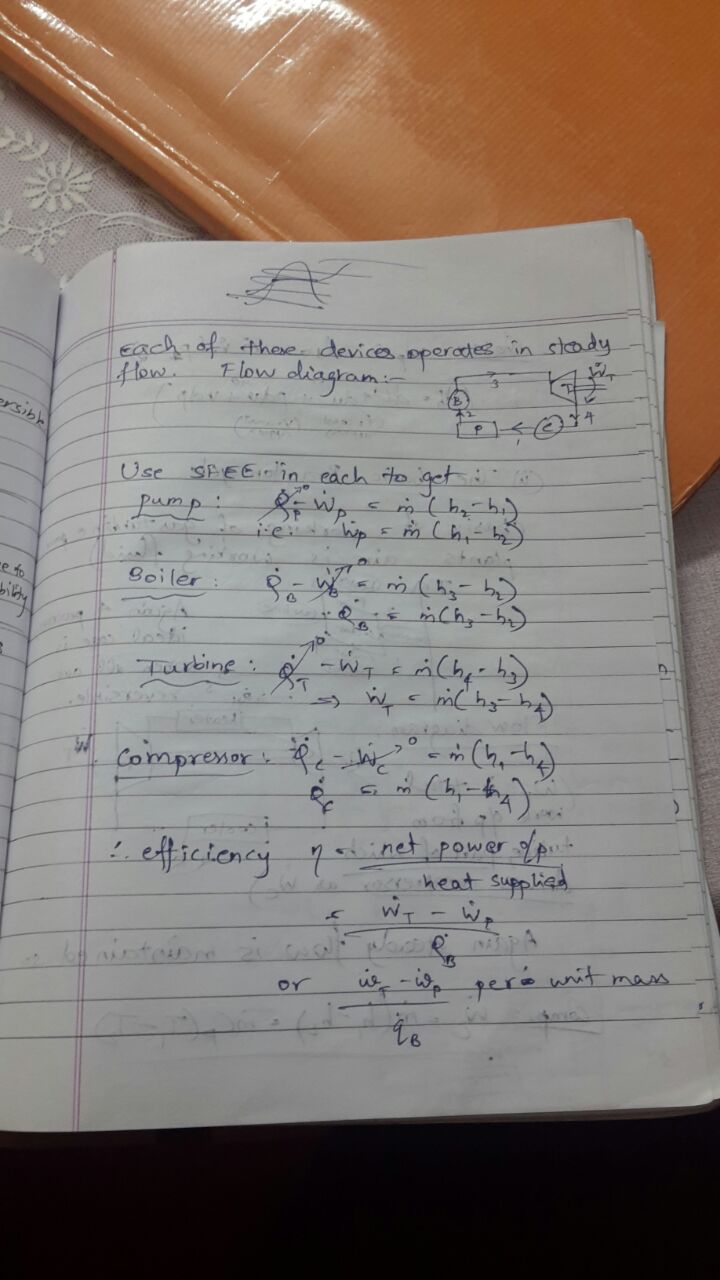 Each of these devices operates in steady
flow. Flow diagram:-
3
T
Ẇ_T
B
2
4
P
1
C
Use SFEE in each to get
Pump : Q̇_P^0 - Ẇ_P = ṁ (h₂-h₁)
i.e. Ẇ_P = ṁ (h₁-h₂)
Boiler : Q̇_B - Ẇ_B^0 = ṁ (h₃-h₂)
Q̇_B = ṁ(h₃-h₂)
Turbine : Q̇_T^0 - Ẇ_T = ṁ(h₄-h₃)
⇒ Ẇ_T = ṁ(h₃-h₄)
Compressor : Q̇_C - Ẇ_C^0 = ṁ (h₁-h₄)
Q̇_C = ṁ (h₁-h₄)
∴ efficiency η = net power o/p
heat supplied
= Ẇ_T - Ẇ_P
Q̇_B
or ẇ_T - ẇ_P per unit mass
q̇_B
ersible
e to
bility